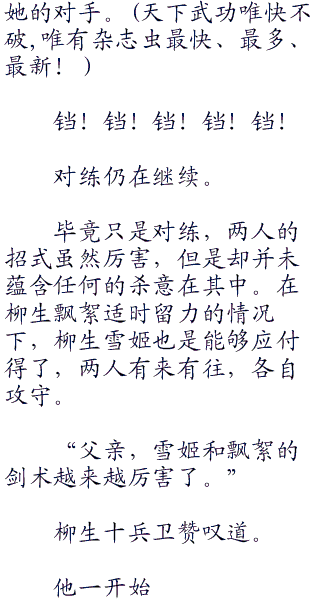 她的对手。(天下武功唯快不
破,唯有杂志虫最快、最多、
最新！)
铛！铛！铛！铛！铛！
对练仍在继续。
毕竟只是对练，两人的
招式虽然厉害，但是却并未
蕴含任何的杀意在其中。在
柳生飘絮适时留力的情况
下，柳生雪姬也是能够应付
得了，两人有来有往，各自
攻守。
“父亲，雪姬和飘絮的
剑术越来越厉害了。”
柳生十兵卫赞叹道。
他一开始